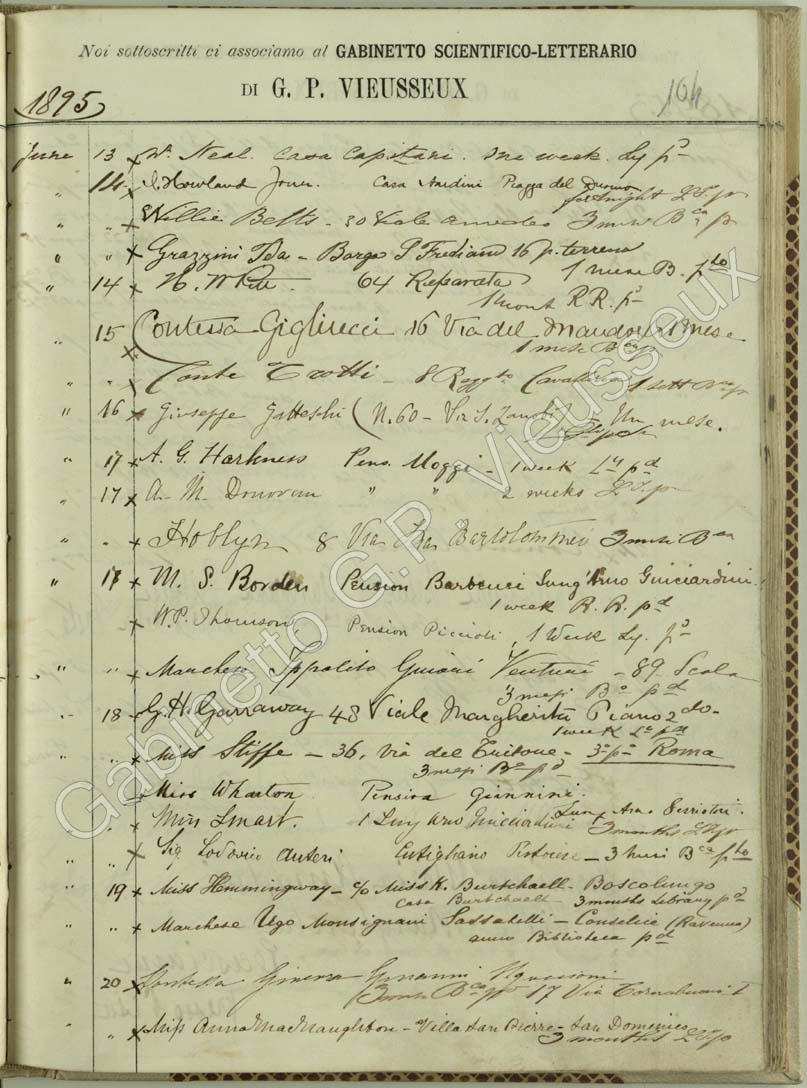 Noi sottoscritti ci associamo al GABINETTO SCIENTIFICO-LETTERARIO
DI G. P. VIEUSSEUX
1895
104
June 13 W. Neal. Casa Capitani. One week. Ly pd
14 J. Howland Jones. Casa Nardini Piazza del Duomo
fortnight L.S. p
" " Willie Betts - 30 Viale Amedeo 3 mesi Bca p
" " Grazzini Ida - Borgo S. Frediano 16 p. terreno
1 mese B. pto
" 14 H. White 64 Reparata
1 mont R.R. pd
" 15 Contessa Gigliucci 16 Via del 1 mese
1 mese Bca p
" " Conte Trotti - 8
" 16 Giuseppe Gatteschi (N. 60 - Via S. Zanobi) Un mese.
" 17 A. G. Harkness Pens. Moggi - 1 week Ly pd
" 17 A. M. Donovan " " 2 weeks L.S. p
" " Hoblyn 8 Via San Bartolommeo 3 mesi Bca
" 18 M. S. Borden Pension Barbensi Lung'Arno Guiciardini.
1 week R. R. pd
W. P. Thomson, Pension Piccioli, 1 Week Ly. pd
" " Marchese Ippolito Venturi - 89 Scala
3 mesi Ba pd
18 G. H. Garraway 48 Viale Margherita Piano 2do.
1 week La pd
" " Miss Stiffe - 36, Via del Tritone - 3o po Roma
3 mesi Ba pd
Miss Wharton Pension Giannini.
Lung Arno Serristori.
" Miss Smart. 1 Lung Arno Guicciardini
3 months
" " Sig. Lodovico Auteri Cutigliano Pistoiese - 3 mesi Bca pto
19 Miss Hemmingway - c/o Miss K. Burtchaell - Boscolungo
casa Burtchaell 3 months Library pd
" " Marchese Ugo Monsignani Sassatelli - Conselice (Ravenna)
anno Biblioteca pd
" 20 Contessa Ginevra
3 Bca 17 Via Tornabuoni
" " Miss Anna MacNaughton - Villa San Pierre - San Domenico
3 months
Gabinetto G.P. Vieusseux